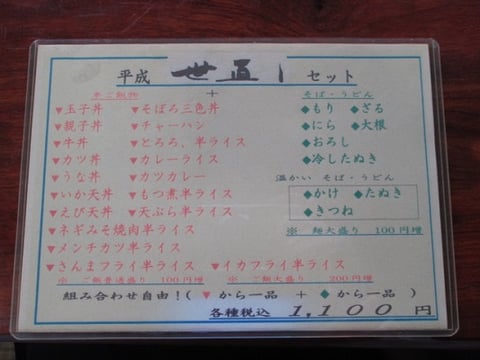 平成 世直し セット
半ご飯物 + そば・うどん
▼玉子丼 ▼そぼろ三色丼 ◆もり ◆ざる
▼親子丼 ▼チャーハン ◆にら ◆大根
▼牛丼 ▼とろろ、半ライス ◆おろし
▼カツ丼 ▼カレーライス ◆冷したぬき
▼うな丼 ▼カツカレー 温かい そば・うどん
▼いか天丼 ▼もつ煮半ライス ◆かけ ◆たぬき
▼えび天丼 ▼天ぷら半ライス ◆きつね
▼ネギみそ焼肉半ライス ※ 麺大盛り 100円増
▼メンチカツ半ライス
▼さんまフライ半ライス ▼イカフライ半ライス
※ ご飯普通盛り 100円増 ※ ご飯大盛り 200円増
組み合わせ自由!( ▼ から一品 + ◆ から一品 )
各種税込 1,100 円